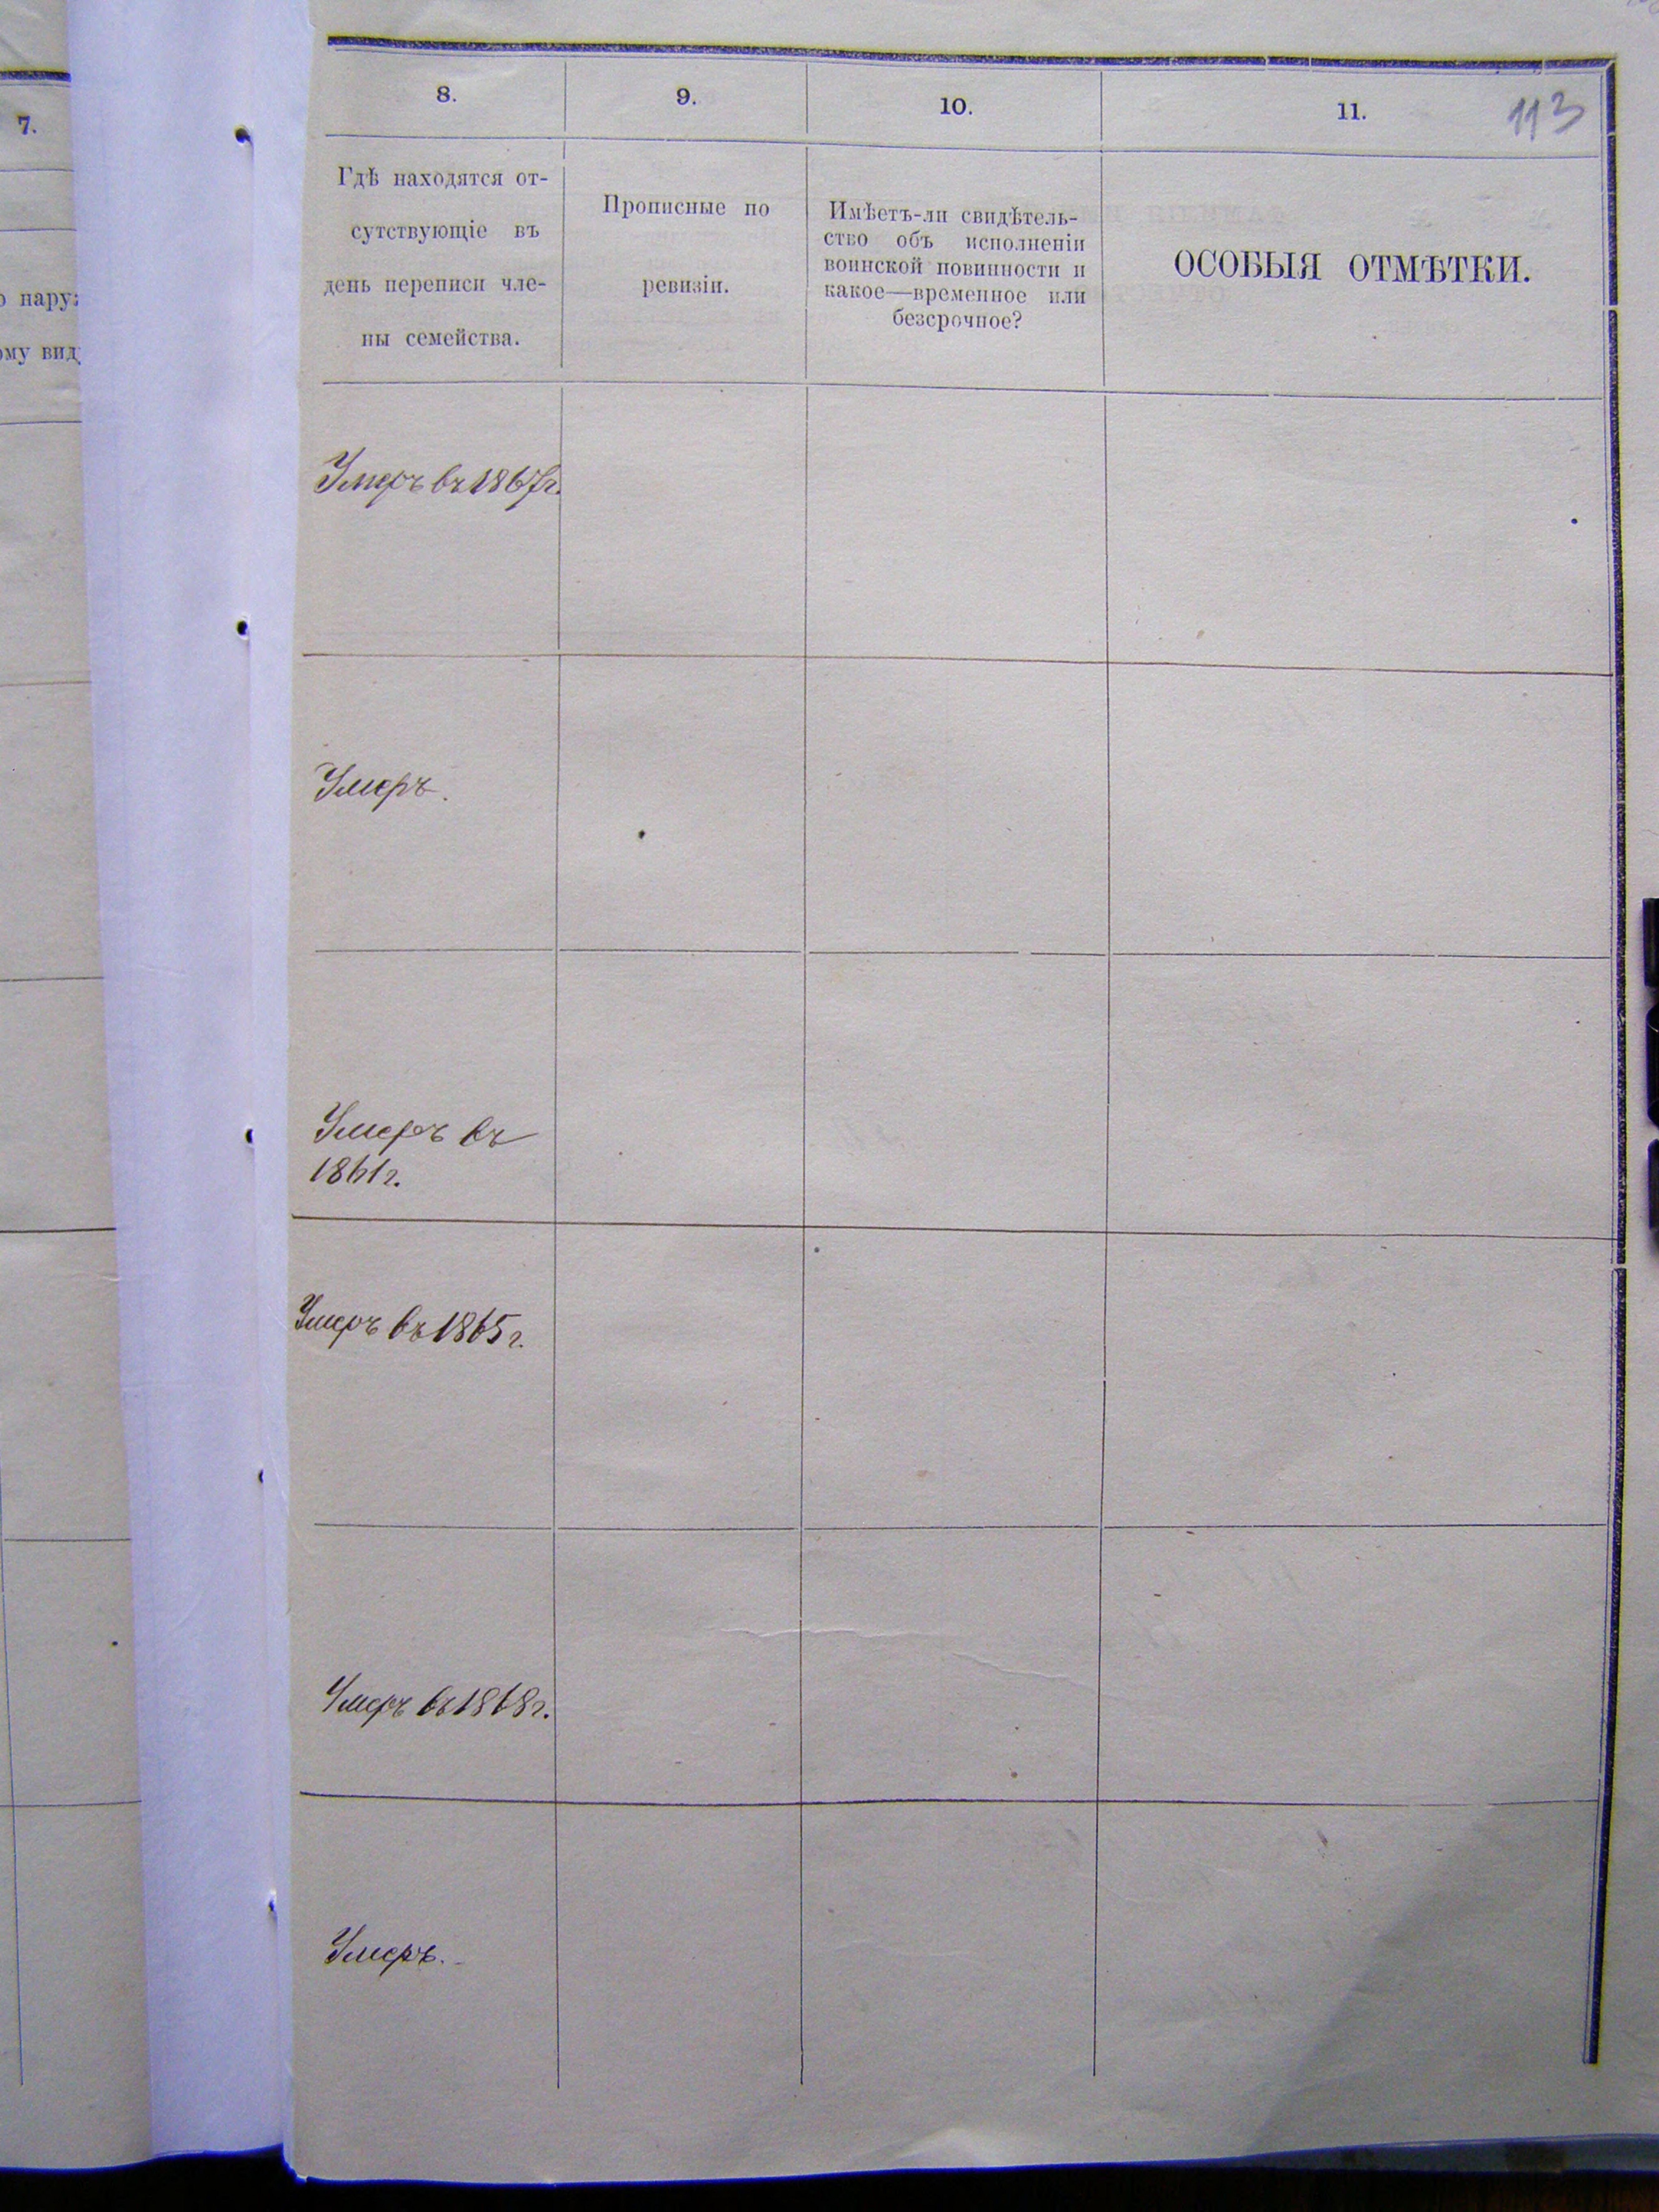 7.
8.
9.
10.
11.
113
Гдѣ находятся от-
сутствующіе въ
день переписи чле-
ны семейства.
Прописные по
ревизіи.
Имѣетъ-ли свидѣтель-
ство объ исполненіи
воинской повинности и
какое—временное или
безсрочное?
ОСОБЫЯ ОТМѢТКИ.
Умеръ въ 1867г.
Умеръ.
Умеръ въ
1861г.
Умеръ въ 1865г.
Умеръ въ 1868г.
Умеръ.